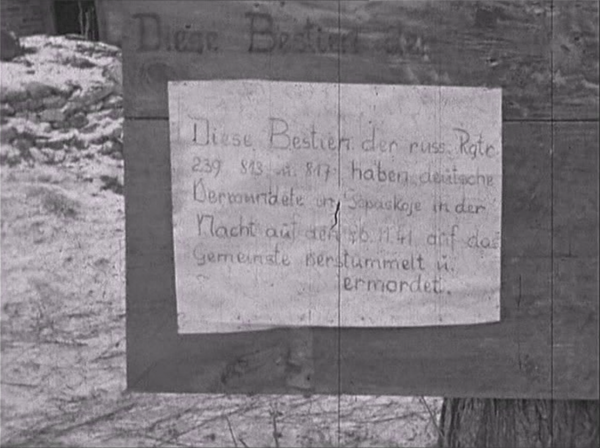 Diese Bestien der
Diese Bestien der russ. Rgtr.
239 813 u. 817 haben deutsche
Verwundete in Gopaskoje in der
Nacht auf den 26.11.41 auf das
gemeinste verstümmelt u.
ermordet.